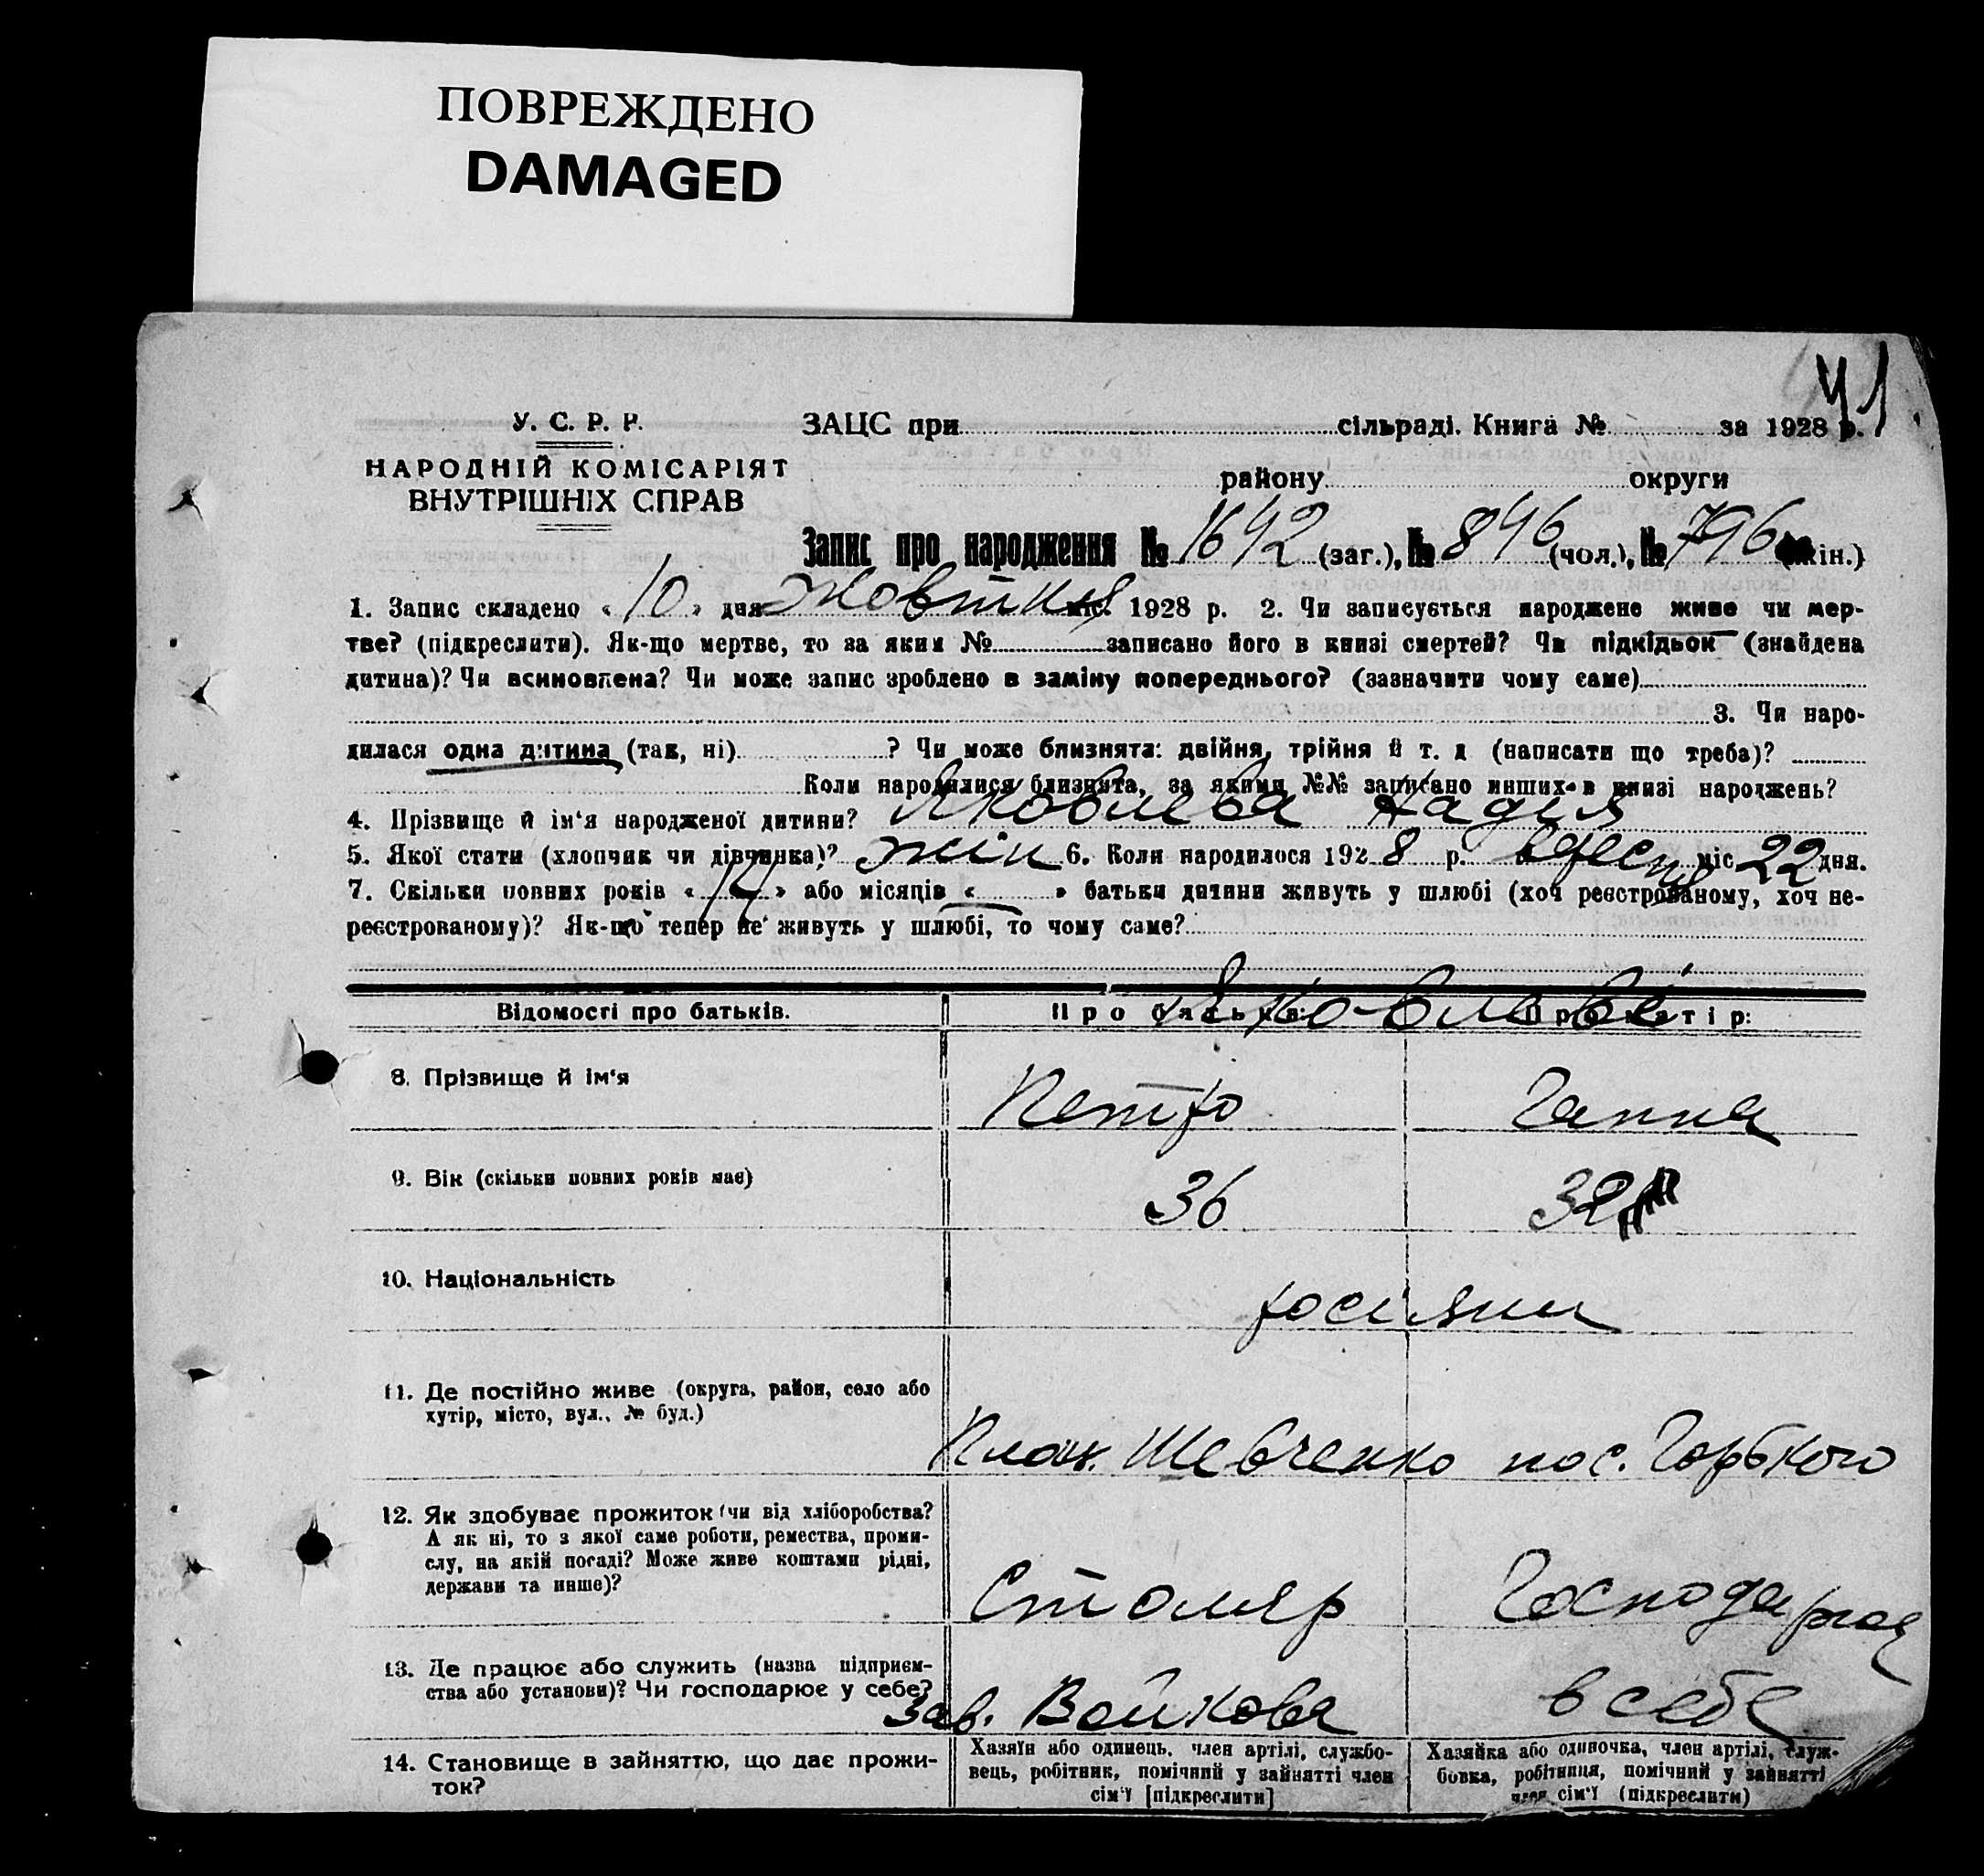 ПОВРЕЖДЕНО
DAMAGED
41
У. С. Р. Р.
НАРОДНІЙ КОМІСАРІЯТ
ВНУТРІШНІХ СПРАВ
ЗАЦС при сільраді. Книга № за 1928 р.
району округи
Запис про народження № 1642 (заг.), № 846 (чол.), № 796 (жін.)
1. Запис складено « 10 » дня Жовтня міс. 1928 р. 2. Чи записується народжене живе чи мер-
тве? (підкреслити). Як-що мертве, то за яким № записано його в книзі смертей? Чи підкідьок (знайдена
дитина)? Чи всиновлена? Чи може запис зроблено в заміну попереднього? (зазначити чому саме)
3. Чи наро-
дилася одна дитина (так, ні) ? Чи може близнята: двійня, трійня й т. д (написати що треба)?
Коли народилися близнята, за якими №№ записано инших в книзі народжень?
4. Прізвище й ім'я народженої дитини? Яковлева Надія
5. Якої стати (хлопчик чи дівчинка)? жін 6. Коли народилося 1928 р. вересня міс 22 дня.
7. Скільки повних років « 14 » або місяців « » батьки дитини живуть у шлюбі (хоч реєстрованому, хоч не-
реєстрованому)? Як-що тепер не живуть у шлюбі, то чому саме?
Відомості про батьків. Про батька: Про матір:
Яковлеві
8. Прізвище й ім'я Петро Ганна
9. Вік (скільки повних років має) 36 32
10. Національність росіяни
11. Де постійно живе (округа, район, село або
хутір, місто, вул., № буд.)
Шевченко пос. Горького
12. Як здобуває прожиток (чи від хліборобства?
А як ні, то з якої саме роботи, ремества, проми-
слу, на якій посаді? Може живе коштами рідні,
держави та инше)?
Столяр Господарює
13. Де працює або служить (назва підприєм-
ства або установи)? Чи господарює у себе?
Зав. Войкова в себе
14. Становище в зайняттю, що дає прожи-
ток?
Хазяїн або одинець, член артілі, службо-
вець, робітник, помічний у зайнятті член
сім'ї [підкреслити]
Хазяйка або одиночка, член артілі, служ-
бовка, робітниця, помічний у зайнятті
член сім'ї (підкреслити)